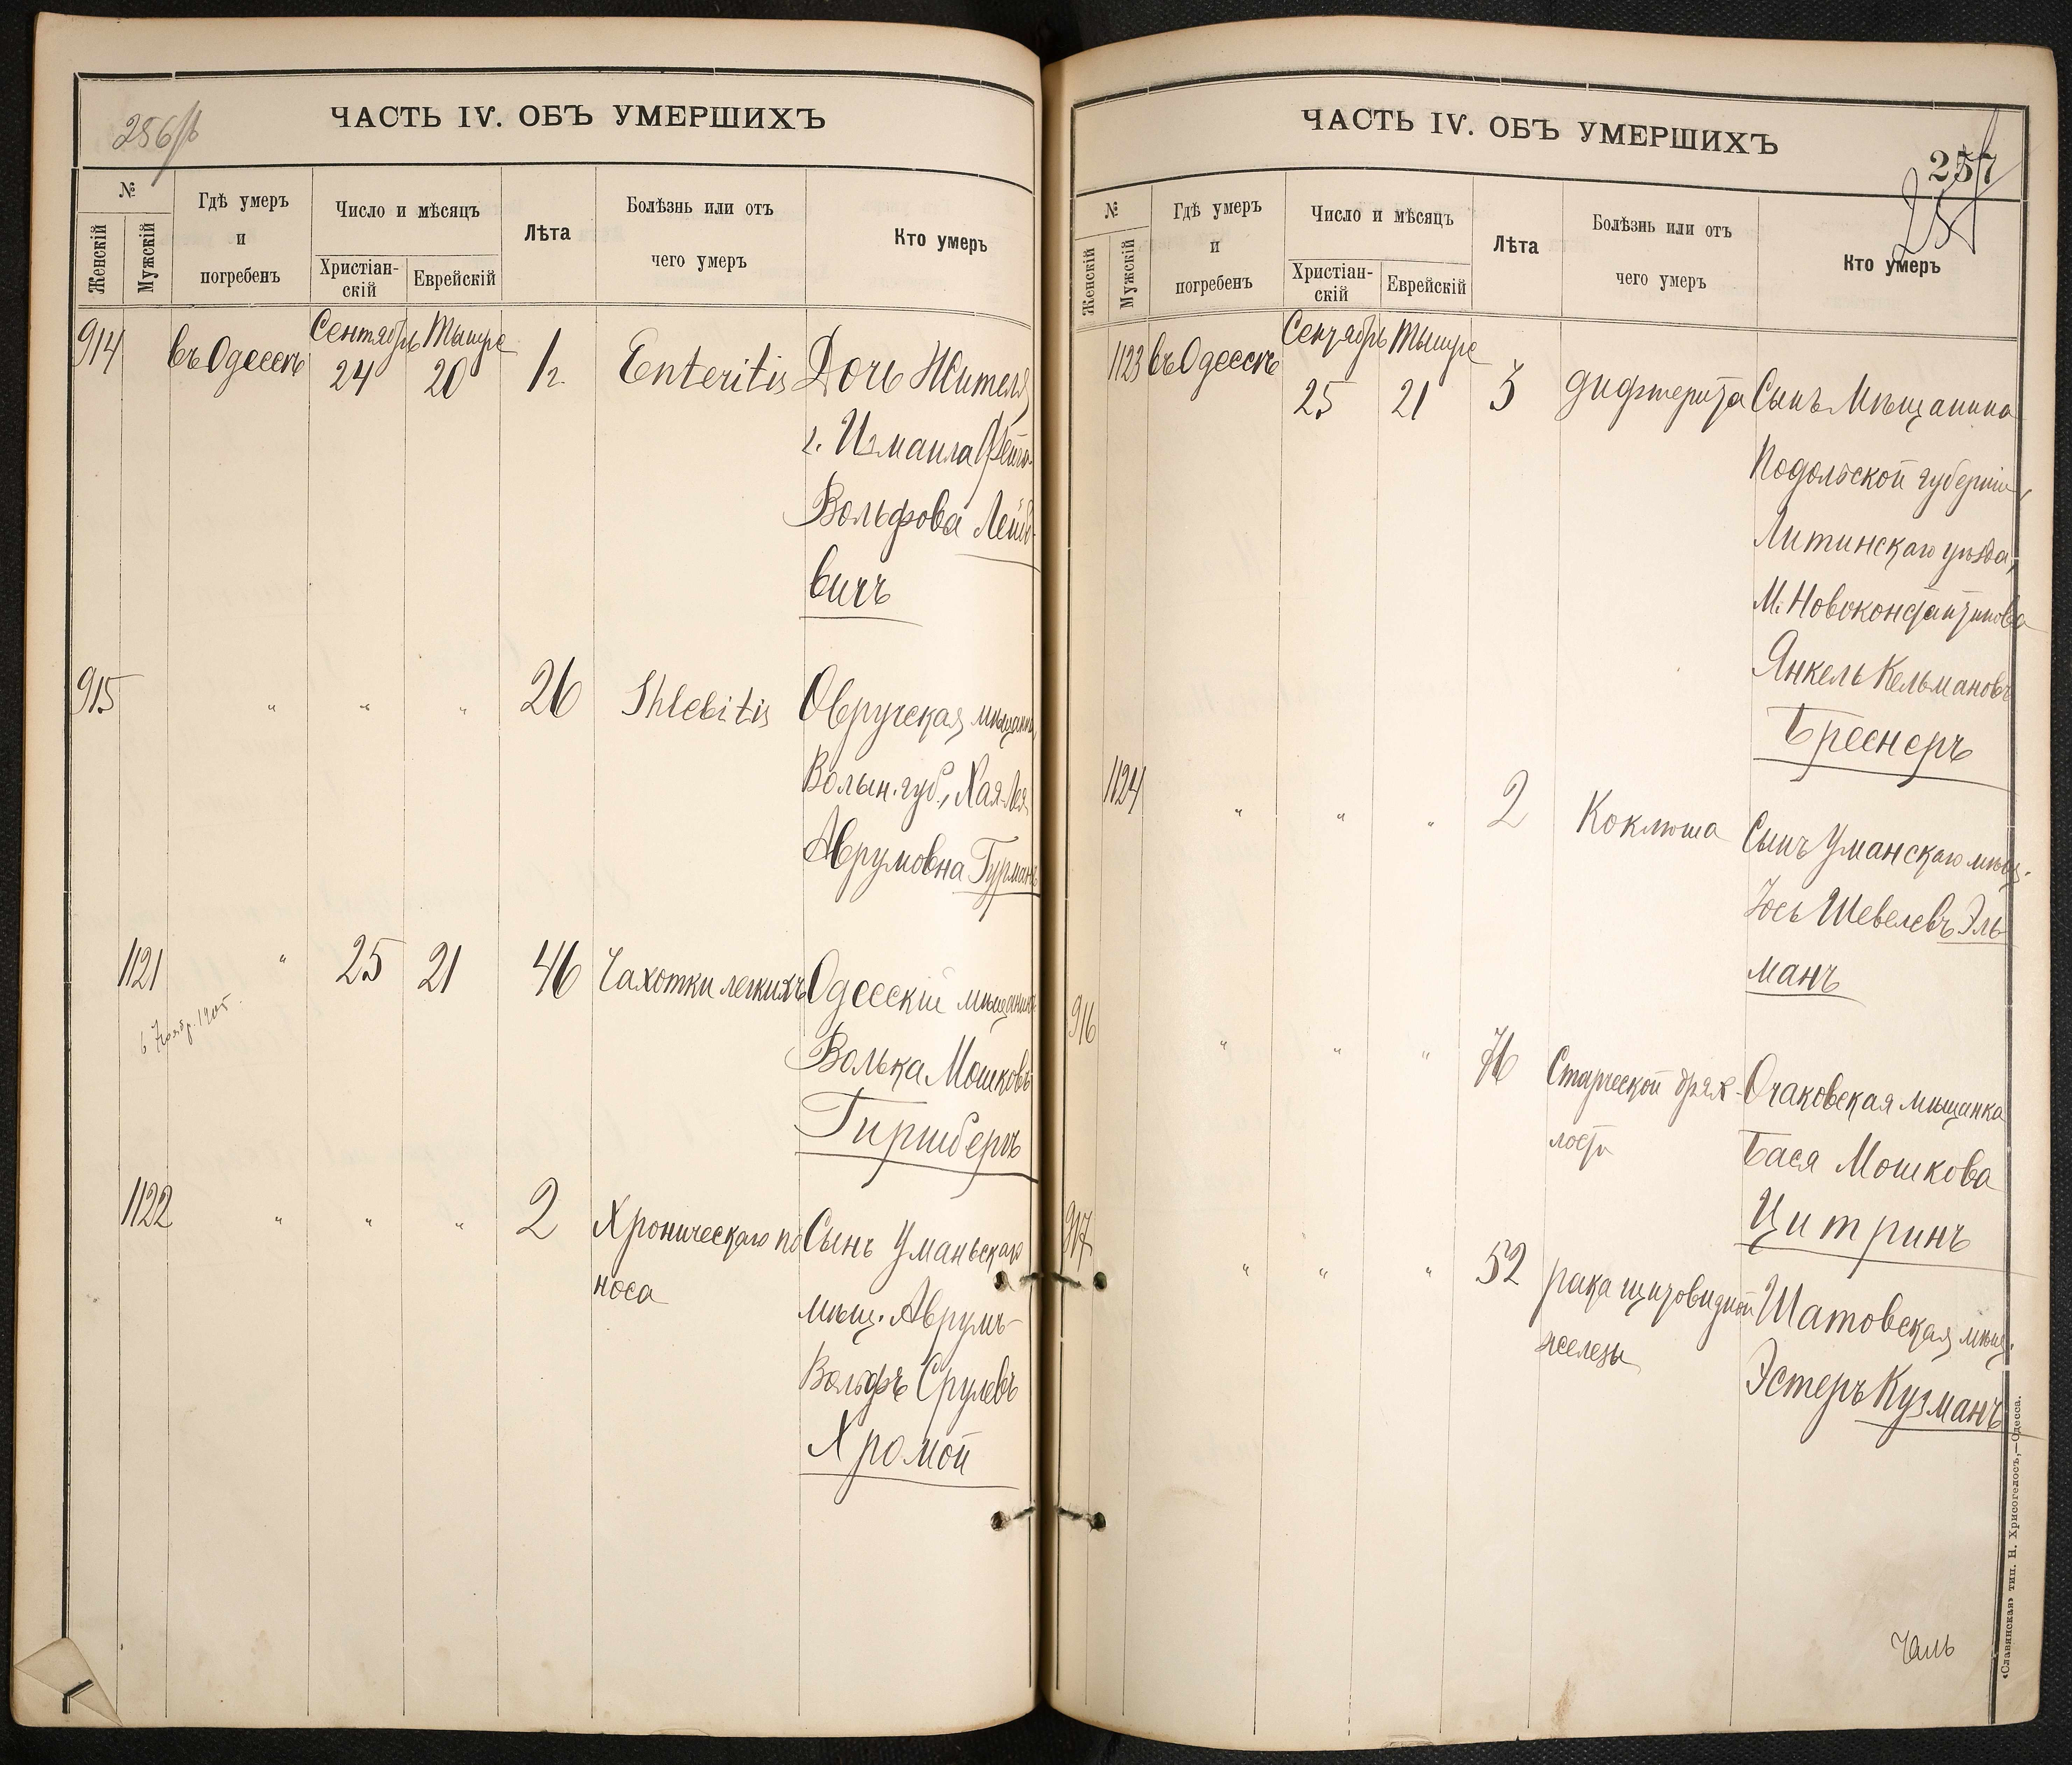 256/б
ЧАСТЬ IV. ОБЪ УМЕРШИХЪ
№
Женскій
Мужскій
Гдѣ умеръ
и
погребенъ
Число и мѣсяцъ
Христіан-
скій
Еврейскій
Лѣта
Болѣзнь или отъ
чего умеръ
Кто умеръ
914 въ Одессѣ Сентябрь 24 Тышре 20 1/2 Enteritis Дочь Жителя
г. Измаила
Вольфова Лейб-
вичъ
915 " " " 26 Phlebitis Овручская мѣщанка
Волын. губ., Хая-Лея
Аврумовна Гурманъ
1121 " 25 21 46 Чахотки легкихъ Одесскій мѣщанинъ
6 Ноябр. 1905.
Волька Мошковъ
Гиршбергъ
1122 " " " 2 Хроническаго по Сынъ Уманьскаго
носа
мѣщ. Аврумъ-
Вольфъ Срулевъ
Хромой
ЧАСТЬ IV. ОБЪ УМЕРШИХЪ
257
257
№
Женскій
Мужскій
Гдѣ умеръ
и
погребенъ
Число и мѣсяцъ
Христіан-
скій
Еврейскій
Лѣта
Болѣзнь или отъ
чего умеръ
Кто умеръ
1123 въ Одессѣ Сентябрь 25 Тышре 21 3 дифтерита Сынъ Мѣщанина
Подольской губерніи,
Литинскаго уѣзда,
М. Новоконстантинова
Янкель Кельмановъ
Бреснеръ
1124 " " " 2 Коклюша Сынъ Уманскаго мѣщ.
Іось Шевелевъ Эль
манъ
916 " " " 76 Старческой дрях- Очаковская мѣщанка
лости
Бася Мошкова
Цитринъ
917 " " " 52 рака щитовидной Шатовская мѣщ.
железы
Эстеръ Кузманъ
«Славянская» тип. Н. Хрисогелосъ,—Одесса.